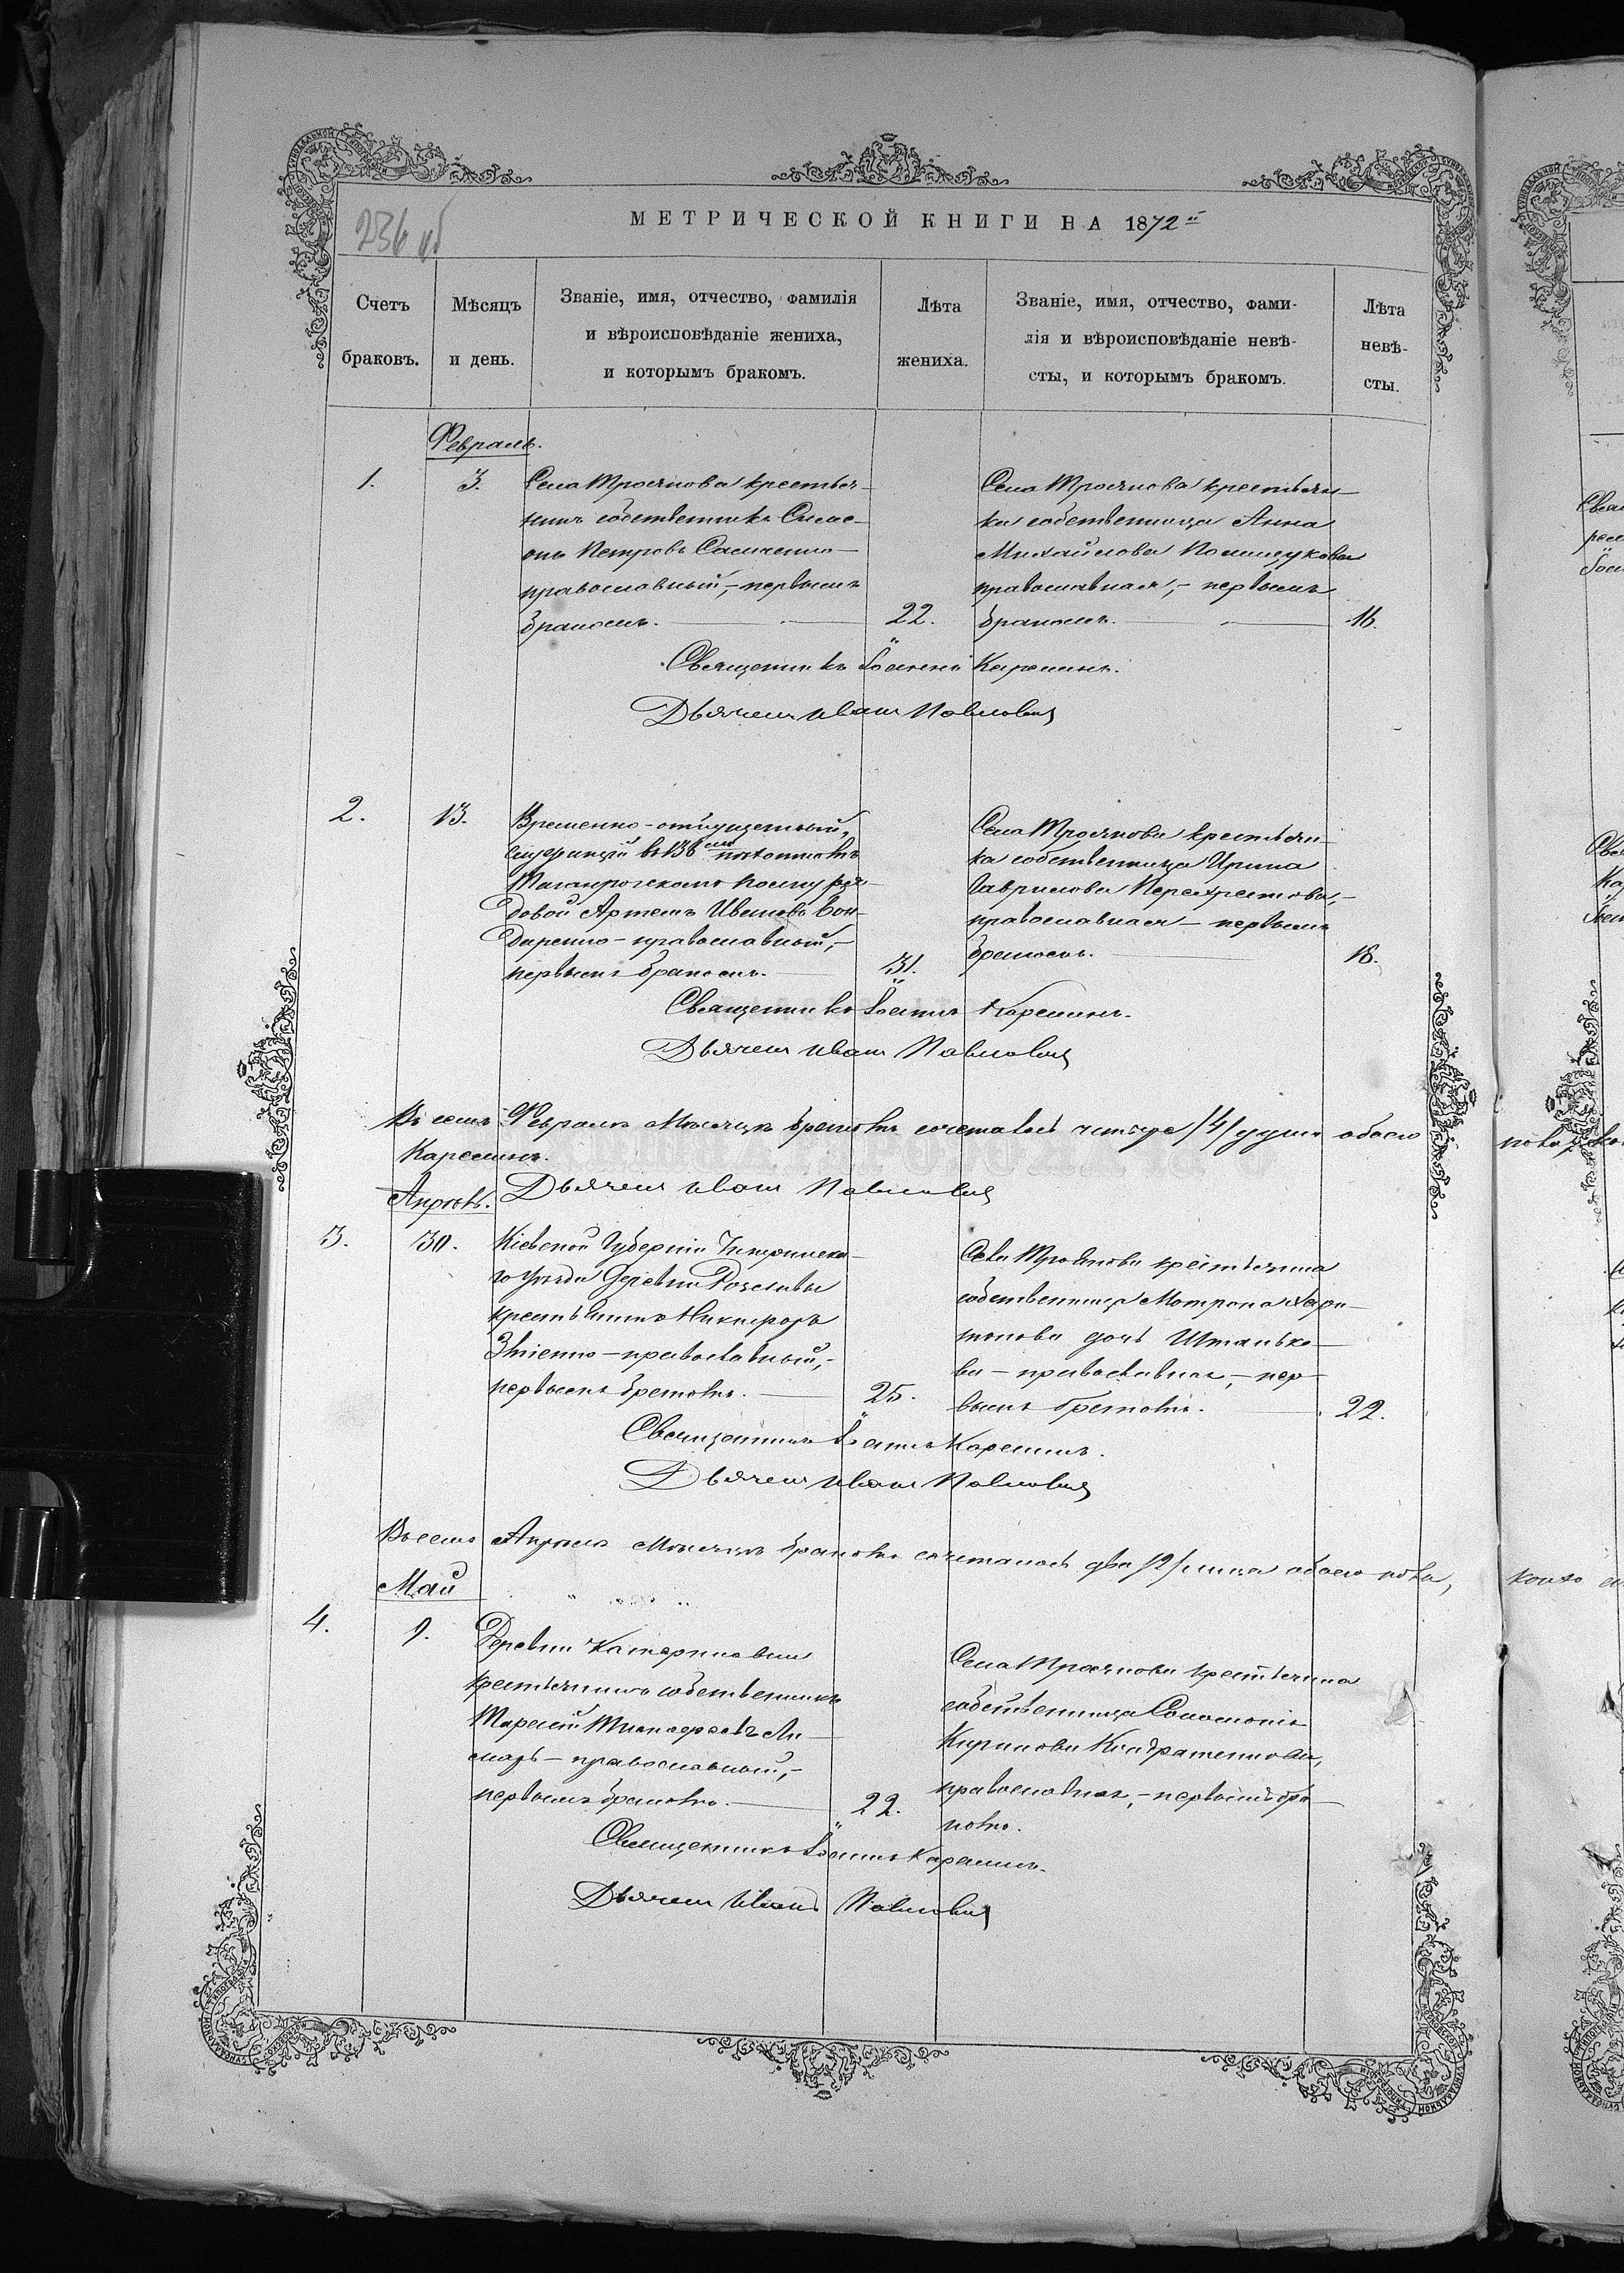 МЕТРИЧЕСКОЙ КНИГИ НА 1872й
236 об
Счетъ браковъ.
Мѣсяцъ и день.
Званіе, имя, отчество, фамилія
и вѣроисповѣданіе жениха,
и которымъ бракомъ.
Лѣта жениха.
Званіе, имя, отчество, фами-
лія и вѣроисповѣданіе невѣ-
сты, и которымъ бракомъ.
Лѣта невѣ-
сты.
Февраль.
1.
3.
Села Троянова крестья-
нинъ собственникъ Симе-
онъ Петровъ Самченко-
православный,- первымъ
бракомъ.
22.
Села Троянова крестьян-
ка собственница Анна
Михайлова Полищукова
православная,- первымъ
бракомъ.
16.
Священникъ Іоаннъ Карешинъ.
Дьячекъ Иванъ Павловичъ
2.
13.
Временно-отпущенный,
служащій въ 136ом пехотномъ
Таганрогскомъ полку ря-
довой Артемъ Ивановъ Бон-
даренко-православный,-
первымъ бракомъ.
31.
Села Троянова крестьян-
ка собственница Ирина
Гаврилова Перехрестова,-
православная- первымъ
бракомъ.
18.
Священникъ Іоаннъ Карешинъ.
Дьячекъ Иванъ Павловичъ
Въ семъ Февралѣ Мѣсяцѣ бракомъ сочеталось четыре /4/ души обоего
Карешинъ.
Дьячекъ Иванъ Павловичъ
Апрѣль.
3.
30.
Кіевской Губерніи
го Уѣзда Деревни
крестьянинъ Никифоръ
-православный,-
первымъ бракомъ.
25.
Села Троянова крестьянка
собственница Мотрона Хари-
тонова дочь
ва-православная,- пер-
вымъ бракомъ.
22.
Священникъ Іоаннъ Карешинъ.
Дьячекъ Иванъ Павловичъ
Въ семъ Апрѣлѣ Мѣсяцѣ бракомъ сочеталось два /2/ лица обоего пола,
Май
4.
9.
Деревни Катериновки
крестьянинъ собственникъ
Тарасій Тимофеевъ Ли-
марь-православный,-
первымъ бракомъ.
22.
Села Троянова крестьянка
собственница Соломонія
Кирилова Кондратенкова,
православная,- первымъ бра-
комъ.
Священникъ Іоаннъ Карешинъ.
Дьячекъ Иванъ Павловичъ